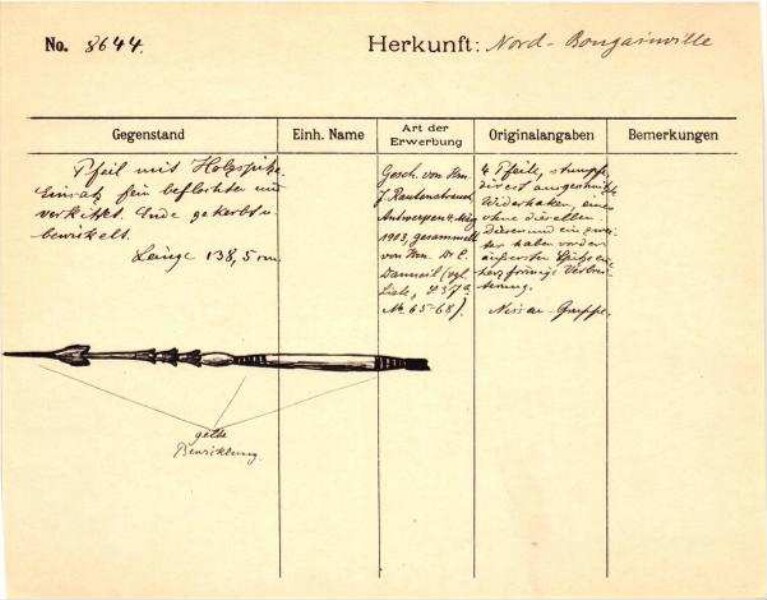 No. 8644. Herkunft: Nord-Bougainville
Gegenstand Einh. Name Art der Erwerbung Originalangaben Bemerkungen
Pfeil mit Holzspitze.
Einsatz fein beflochten und
verkittet. Ende gekerbt u.
bewickelt.
Länge 138,5 cm
Gesch. von Hrn.
J. Rautenstrauch,
Antwerpen 4. März
1903, gesammelt
von Hrn. Dr E.
Danneil (vgl.
Liste, S 37a
No 65-68).
4 Pfeile, stumpfe,
ausgeschnitzte
Widerhaken, einer
ohne dieselben.
Dieser und ein zwei-
ter haben vor der
äußersten Spitze eine
herzförmige Verbrei-
terung.
Nissan-Gruppe.
gelbe
Bewicklung.